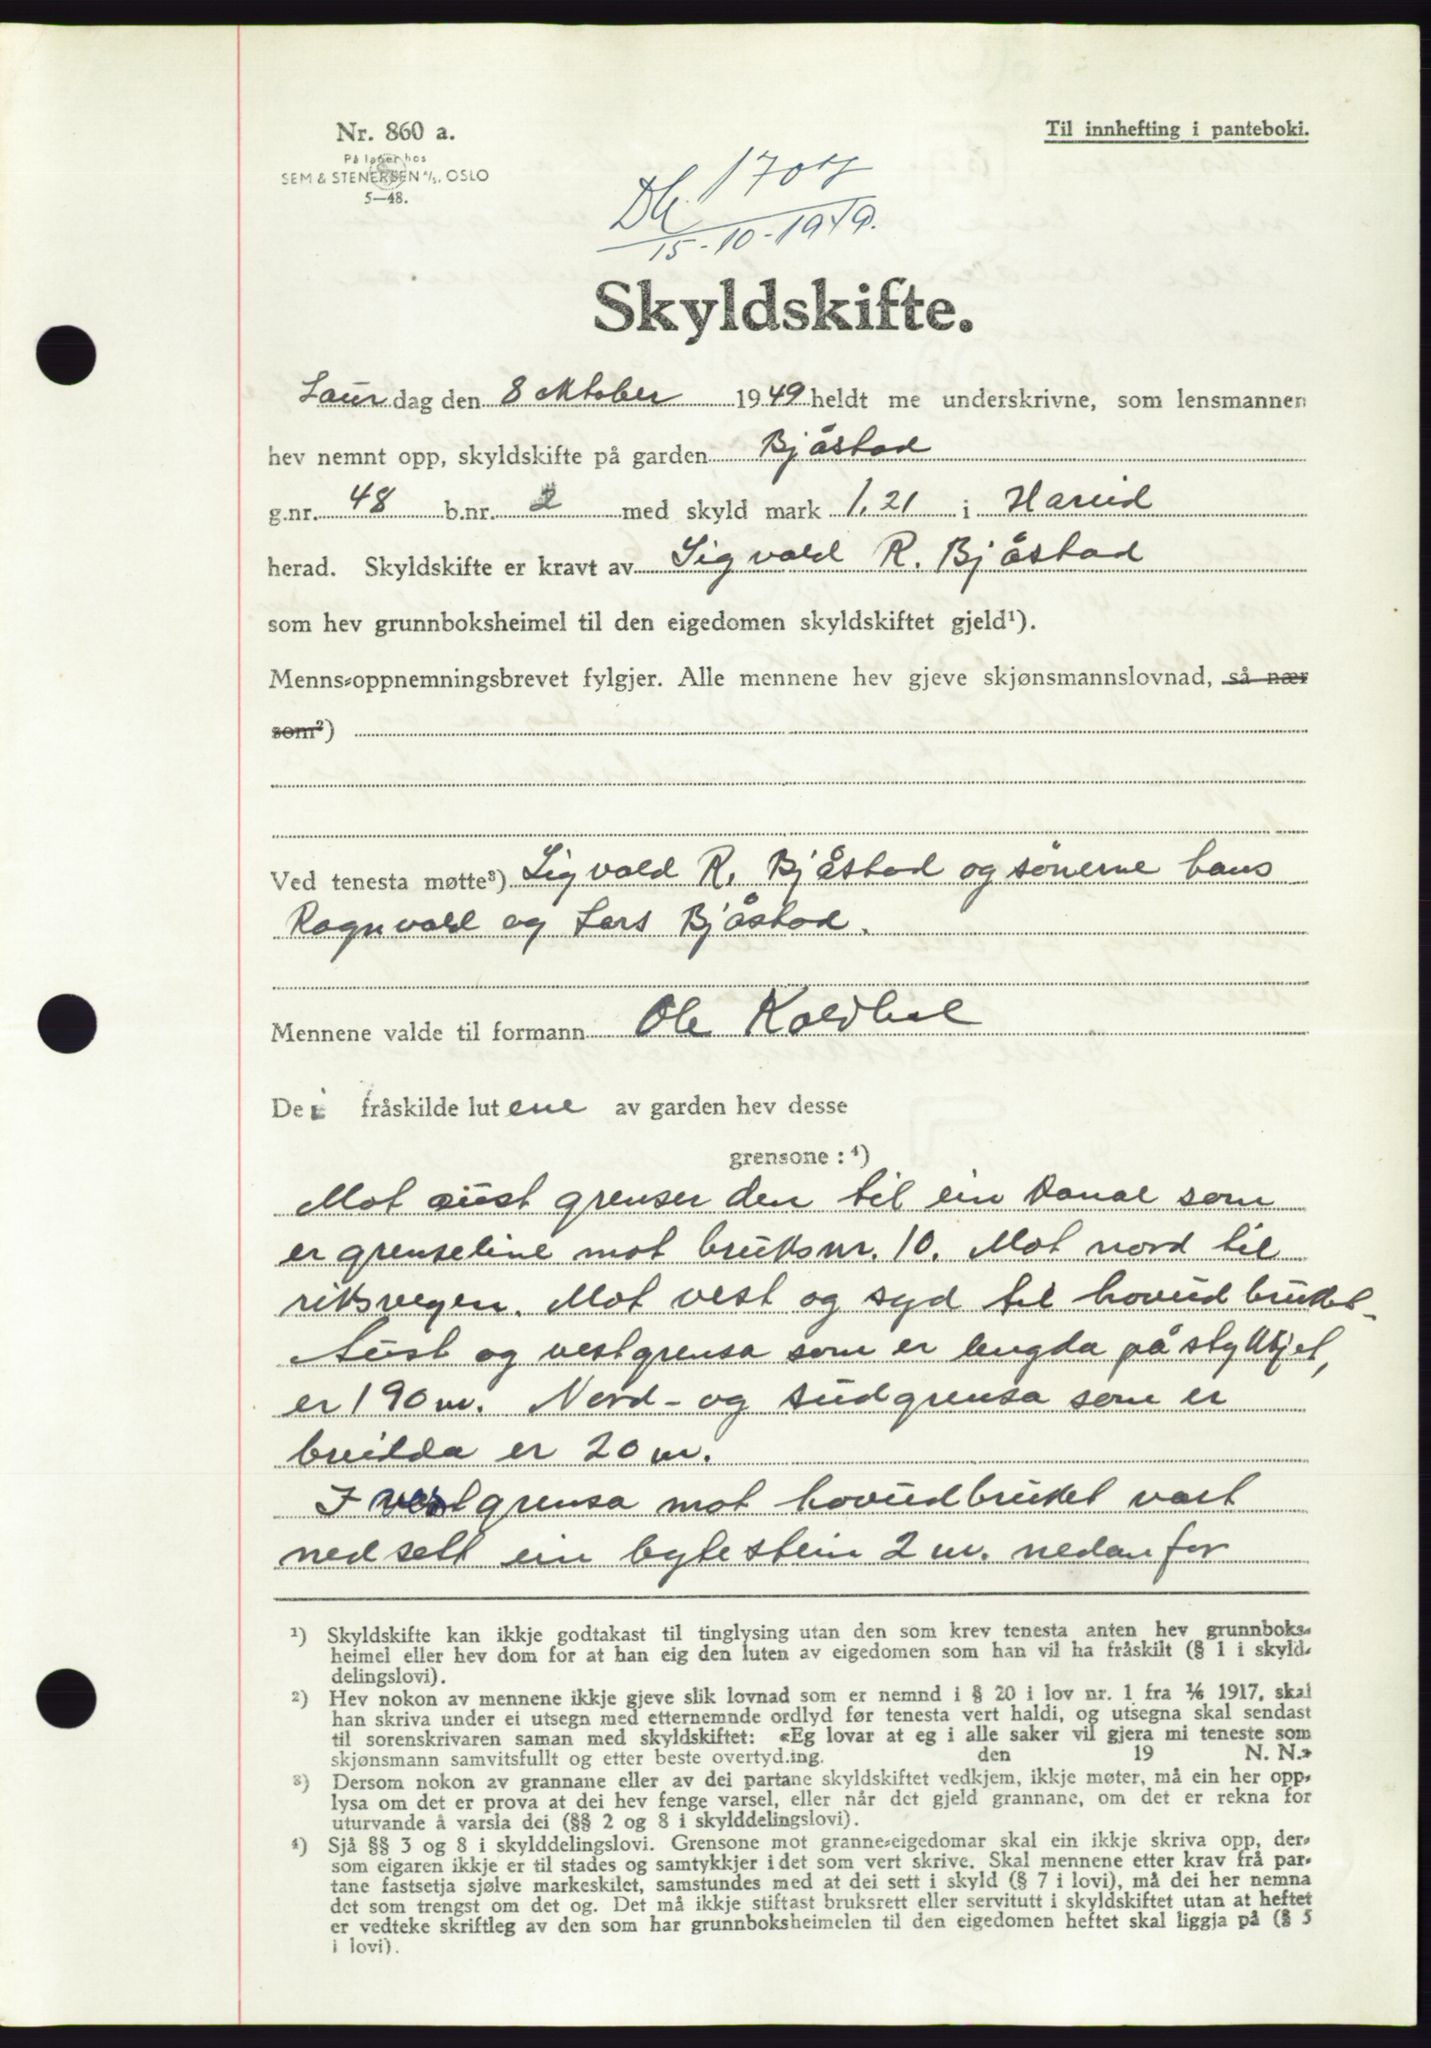 Nr. 860 a.
På lager hos
SEM & STENERSEN A/S, OSLO
5—48.
Til innhefting i panteboki.
15-10-1949.
Skyldskifte.
Laur dag den 8 oktober 1949 heldt me underskrivne, som lensmannen
hev nemnt opp, skyldskifte på garden Bjåstad
g.nr. 48 b.nr. 2 med skyld mark 1,21 i Hareid
herad. Skyldskifte er kravt av Sigvald R. Bjåstad
som hev grunnboksheimel til den eigedomen skyldskiftet gjeld¹).
Menns-oppnemningsbrevet fylgjer. Alle mennene hev gjeve skjønsmannslovnad, så nær
som²)
Ved tenesta møtte³) Sigvald R. Bjåstad og sönerne hans
Ragnvald og Lars Bjåstad.
Mennene valde til formann Ole Koldhol
De i fråskilde lutene av garden hev desse
grensone : ⁴)
Mot aust grenser den til ein kanal som
er grenseline mot bruksnr. 10. Mot nord til
riksvegen. Mot vest og syd til hovudbruket.
Aust og vestgrensa som er lengda på stykkjet,
er 190 m. Nord- og sudgrensa som er
breidda er 20 m.
I vestgrensa mot hovudbruket vart
nedsett ein bytestein 2 m. nedanfor
¹) Skyldskifte kan ikkje godtakast til tinglysing utan den som krev tenesta anten hev grunnboks-
heimel eller hev dom for at han eig den luten av eigedomen som han vil ha fråskilt (§ 1 i skyld-
delingslovi).
²) Hev nokon av mennene ikkje gjeve slik lovnad som er nemnd i § 20 i lov nr. 1 fra 1/6 1917, skal
han skriva under ei utsegn med etternemnde ordlyd før tenesta vert haldi, og utsegna skal sendast
til sorenskrivaren saman med skyldskiftet: «Eg lovar at eg i alle saker vil gjera mi teneste som
skjønsmann samvitsfullt og etter beste overtyd.ing. den 19 N. N.»
³) Dersom nokon av grannane eller av dei partane skyldskiftet vedkjem, ikkje møter, må ein her opp-
lysa om det er prova at dei hev fenge varsel, eller når det gjeld grannane, om det er rekna for
uturvande å varsla dei (§§ 2 og 8 i skylddelingslovi).
⁴) Sjå §§ 3 og 8 i skylddelingslovi. Grensone mot granne-eigedomar skal ein ikkje skriva opp, der-
som eigaren ikkje er til stades og samtykkjer i det som vert skrive. Skal mennene etter krav frå par-
tane fastsetja sjølve markeskilet, samstundes med at dei sett i skyld (§ 7 i lovi), må dei her nemna
det som trengst om det og. Det må ikkje stiftast bruksrett eller servitutt i skyldskiftet utan at heftet
er vedteke skriftleg av den som har grunnboksheimelen til den eigedomen heftet skal liggja på (§ 5
i lovi).